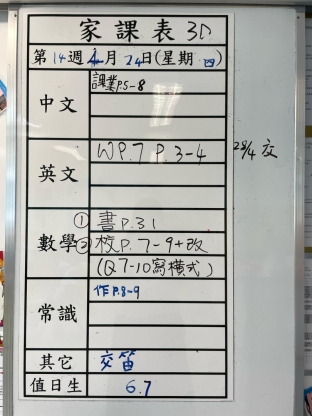 家課表 3D
第14週 4月24日(星期四)
中文
課業P.5-8
英文
WP.7 P.3-4
28/4 交
數學
① 書P.31
② 校P.7-9+改
(Q7-10寫橫式)
常識
作P.8-9
其它
交笛
值日生
6.7